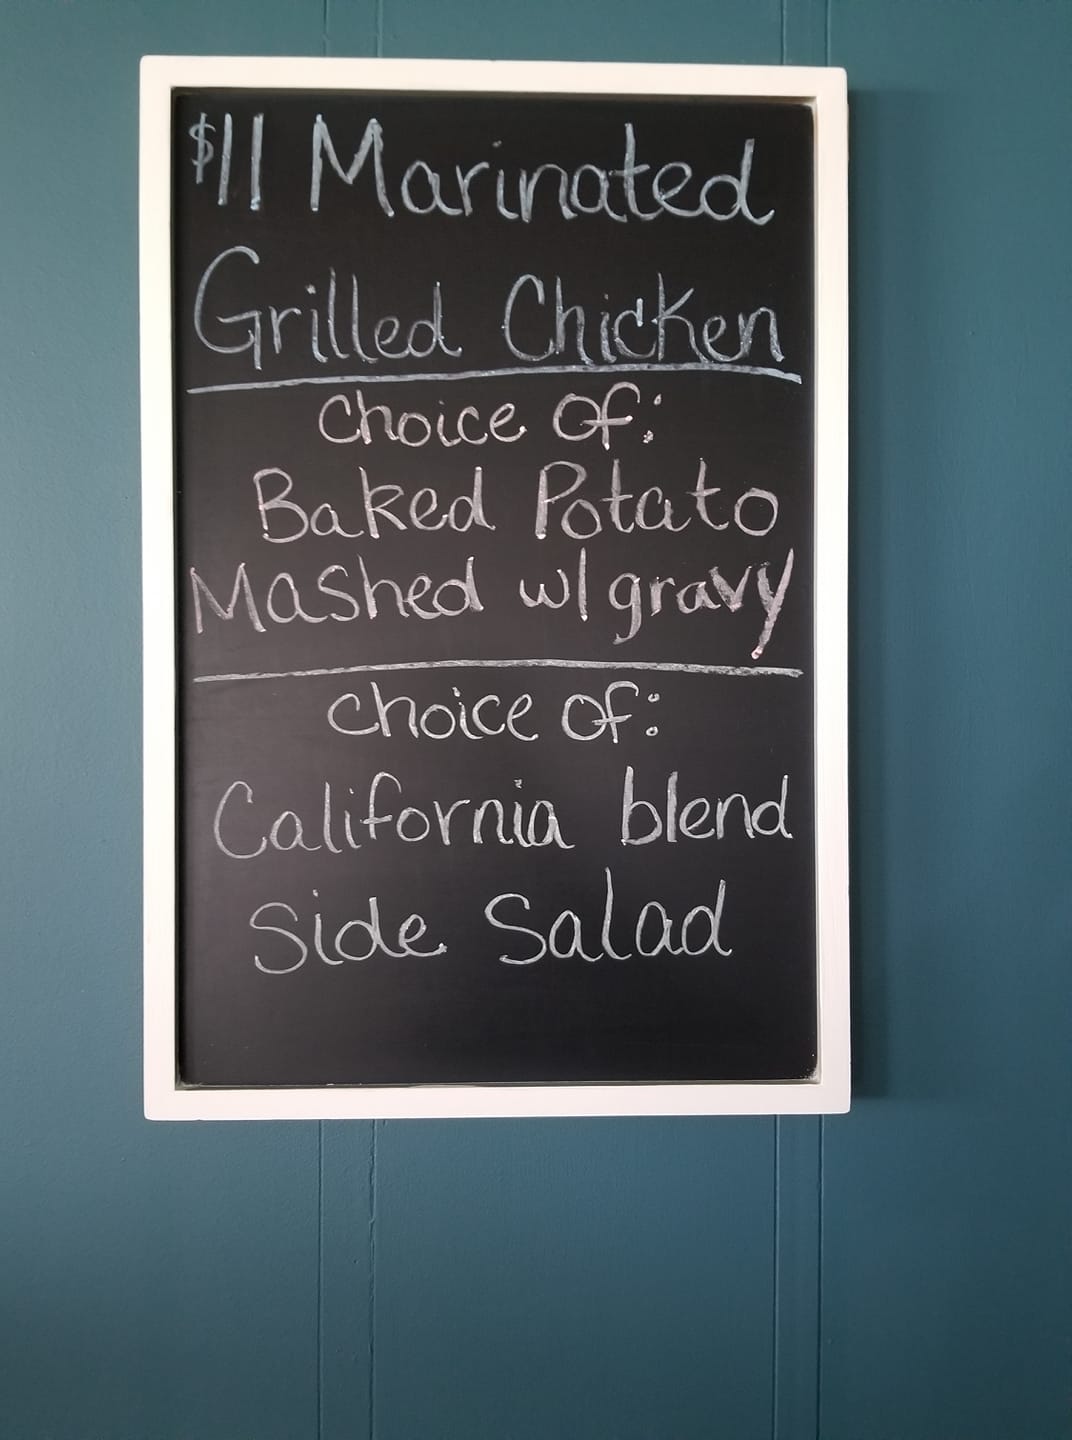 $11 Marinated
Grilled Chicken
choice of:
Baked Potato
Mashed w/gravy
choice of:
California blend
Side Salad